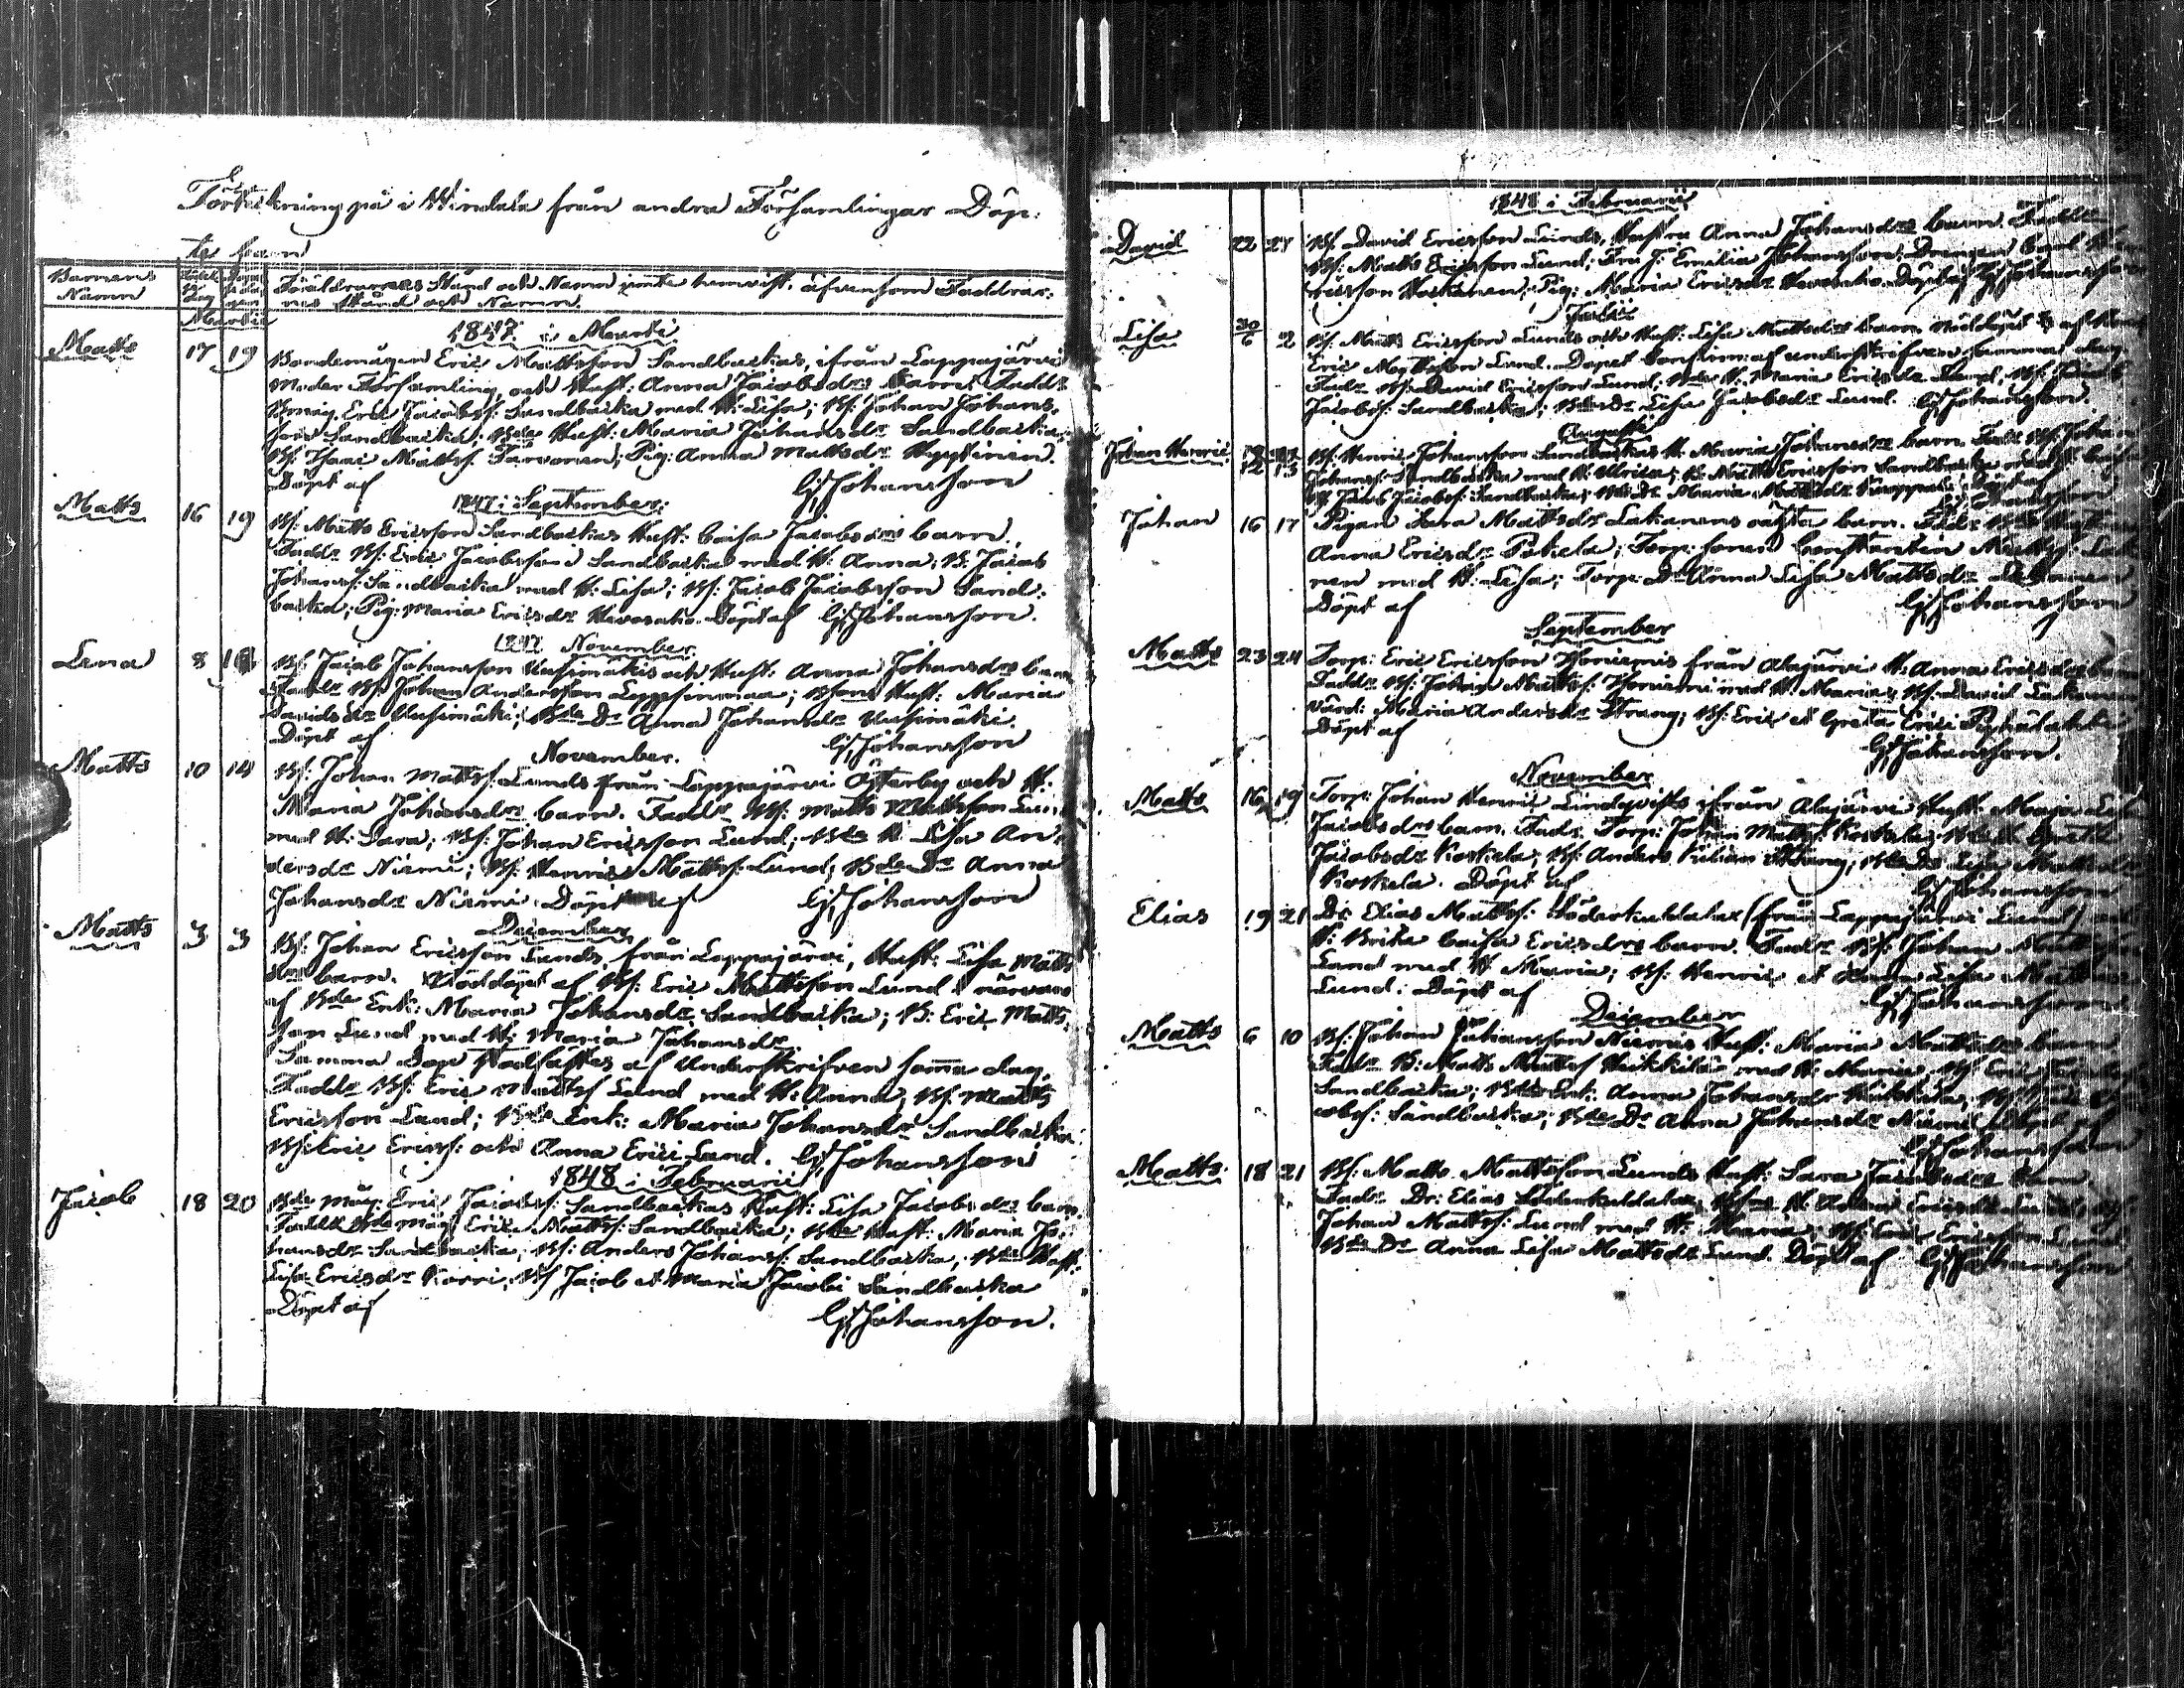 Förteckning på i Windala från andra Församlingar Döp:
te barn
Barnens
Namn
Föräldrarnes Stånd och Namn jemte hemvist, äfvensom Faddrar:
nes Stånd och Namn.
Martii
1847 i Marti
Matts 17 19 Bondemågen Eric Mattsson Sandbackas, ifrån Lappajärvi
Moder Församling, och Hust: Anna Jacobsdrs barn. Faddr
Bmåg. Eric Jacobss: Sandbacka med H: Lisa; Bs: Johan Johans-
son Sandbacka; Bde Hust: Maria Johansdr Sandbacka;
Bs: Isaac Mattss. Tarvonen; Pig: Anna Mattsdr Hyytinen.
Döpt af GJJohansson
1847 i September:
Matts 16 19 Bs: Matts Ericsson Sandbackas Hust: Caisa Jacobsdrs barn.
Faddr Bs: Eric Jacobsson Sandbacka med H: Anna; B: Jacob
Johanss: Sandbacka med H: Lisa; Bs: Jacob Jacobsson Sand:
backa; Pig: Maria Ericsdr Kevosaho. Döpt af GJJohansson.
1847 November
Lena 8 Bs: Jacob Johansson Uusimäkis och Hust: Anna Johansdrs barn
Faddr Bs: Johan Andersson Leppsinmaa; Bsons Hust: Maria
Davidsdr Uusimäki; Bde Dr Anna Johansdr Uusimäki.
Döpt af GJJohansson
November.
Matts 10 14 Bs: Johan Mattss. Lunds från Lappajärvi Österby och H:
Maria Johansdrs barn. Faddr Bs: Matts Mattsson Lund
med H: Sara; Bs: Johan Ericsson Lund; Bds H: Lisa An-
dersdr Niemi; Bs: Henric Mattss: Lund; Bde Dr Anna
Johansdr Niemi. Döpt af GJJohansson
December
Matts 3 3 Bs: Johan Ericsson Lunds från Lappajärvi, Hust: Lisa Matts
drs barn. Nöddöpt af Bs: Eric Mattsson Lund i närvaro
af Bde Enk: Maria Johansdr Sandbacka; B: Eric Matts
son Lund med H: Maria Johansdr.
Samma dop stadfästes af Underskrifven samma dag.
Faddr Bs: Eric Mattss Lund med H: Anna; Bs: Matts
Ericsson Lund; Bde Enk: Maria Johansdr Sandbacka:
Bs: Eric Ericss: och Anna Erici Lund. GJJohansson
1848 i Februarii
Jacob 18 20 Bde måg: Eric Jacobss: Sandbackas Hust: Lisa Jacobsdrs barn.
Faddr Bde måg Eric Mattss: Sandbacka; Bde Hust: Maria Jo-
hansdr Sandbacka; Bs: Anders Johanss: Sandbacka; Bde Hust:
Lisa Ericsdr Korri; Bs Jacob et Maria Jacobi Sandbacka
Döpt af GJJohansson.
1848 i Februarii
David 22 27 Bs. David Ericsson Lunds, Hustru Anna Johansdrs barn. Faddr
Bs: Matts Ericsson Lund; Fru J: Emilia Johansson; Drengen Carl
Pig: Maria Ericsdr Kevosaho. Döpt af GJJohansson
Julii
Lisa 30/6 2 Bs: Matts Ericsson Lunds och Hust: Lisa Mattsdrs barn Nöddöpt af
Eric Mattsson Lund. Dopet confirm: af underskrifven samma dag.
Fadr Bs: David Ericsson Lund; Bde H: Maria Ericsdr Lund, Bs: Jacob
Jacobss: Sandbacka; Bde Dr Lisa Jacobsdr Lund. GJJohansson.
Augusti
Johan Henric 12 13 Bs: Henric Johansson Sandbackas H: Maria Johansdrs barn. Fadr Bs: Johan
Johanss: Sandbacka med H: Ulrica; B: Matts Ericsson Sandbacka med H: Caisa
Bs Jacob Jacobss: Sandbacka; Bde Dr Maria Mattsdr Döpt af
GJJohansson
Johan 16 17 Pigan Sara Mattsdr Lakanens oäkta barn. Fadr
Anna Ericsdr Pokela; Torp: sonen Constantin Mattss: Laka
nen med H: Lisa; Torp: Dr Anna Lisa Mattsdr Lakanen
Döpt af GJJohansson
September
Matts 23 24 Torp: Eric Ericsson från Alajärvi H: Anna Ericsdrs barn
Faddr Bs: Johan Mattss: med H: Maria; Bs: David
Maria Andersdr Strang; Bs: Eric et Greta Erici
Döpt af GJJohansson.
November
Matts 16 19 Torp: Johan Henric Lindqvists ifrån Alajärvi Hust: Maja Lisa
Jacobsdrs barn. Fadr Torp: Johan Mattss: Koskela; Greta
Jacobsdr Koskela; Bs: Anders Kilian Strang; Bde Dr Lisa Mattsdr
Koskela. Döpt af GJJohansson
Elias 19 21 Dr: Elias Mattss: Söderkuldalax (från Lappajärvi Lund) och
H: Brita Caisa Ericsdrs barn. Fadr Bs: Johan Mattsson
Lund med H Maria; Bs: Henric et Anna Lisa Matts
Lund. Döpt af GJJohansson
December
Matts 6 10 Bs: Johan Johansson Niemis Hust: Maria Mattsdrs barn
Fadr B: Matts Mattss Heikkilä med H: Maria, Bs Eric
Sandbacka; Bde Enk: Anna Johansdr
cobss: Sandbacka; Bde Dr Anna Johansdr Niemi Döpt af
GJJohansson
Matts 18 21 Bs: Matts Mattsson Lunds Hust: Sara Jacobsdrs barn
Fadr Dr: Elias Söderkuldalax, H: Anna Ericsdr Lund;
Johan Mattss: Lund med H: Maria; Bs: Eric Ericsson Lund
Bde Dr Anna Lisa Mattsdr Lund. Döpt af GJJohansson